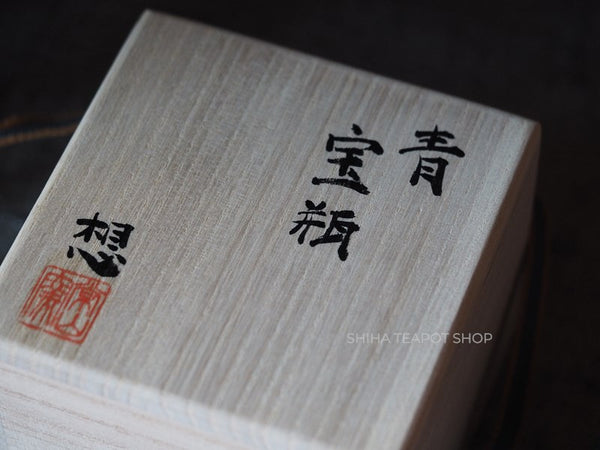 青
宝瓶
想
SHIHA TEAPOT SHOP